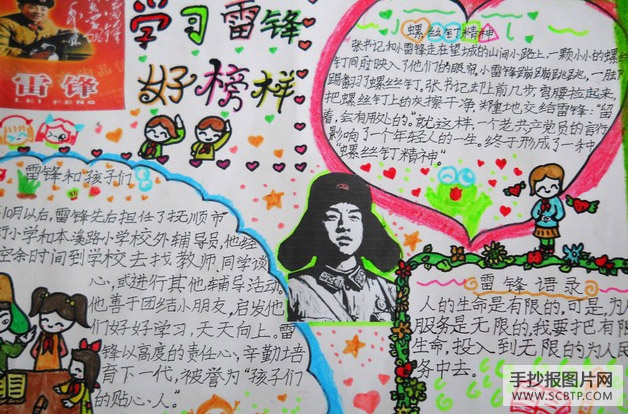 雷锋
LEI FENG
学习雷锋
好榜样
螺丝钉精神
张书记和小雷锋走在望城的山间小路上,一颗小小的螺丝
钉同时映入了他们的眼帘,小雷锋蹦蹦跳跳,一脚
踢翻了螺丝钉。张书记却上前几步弯腰捡起来,
把螺丝钉上的灰擦干净,郑重地交给雷锋:"留
着,会有用处的。"就这样,一个老共产党员的言行
影响了一个年轻人的一生。终于形成了一种
"螺丝钉精神"。
雷锋和孩子们
10月以后,雷锋先后担任了抚顺市
小学和本溪路小学校外辅导员,他经
空余时间到学校去找教师、同学谈
心,或进行其他辅导活动
他善于团结小朋友,启发他
们好好学习,天天向上。雷
锋以高度的责任心,辛勤培
育下一代,被誉为"孩子们
的贴心人。"
雷锋语录
人的生命是有限的,可是,为人
服务是无限的,我要把有限
生命,投入到无限的为人民
务中去。
手抄报图片网
WWW.SCBTP.COM